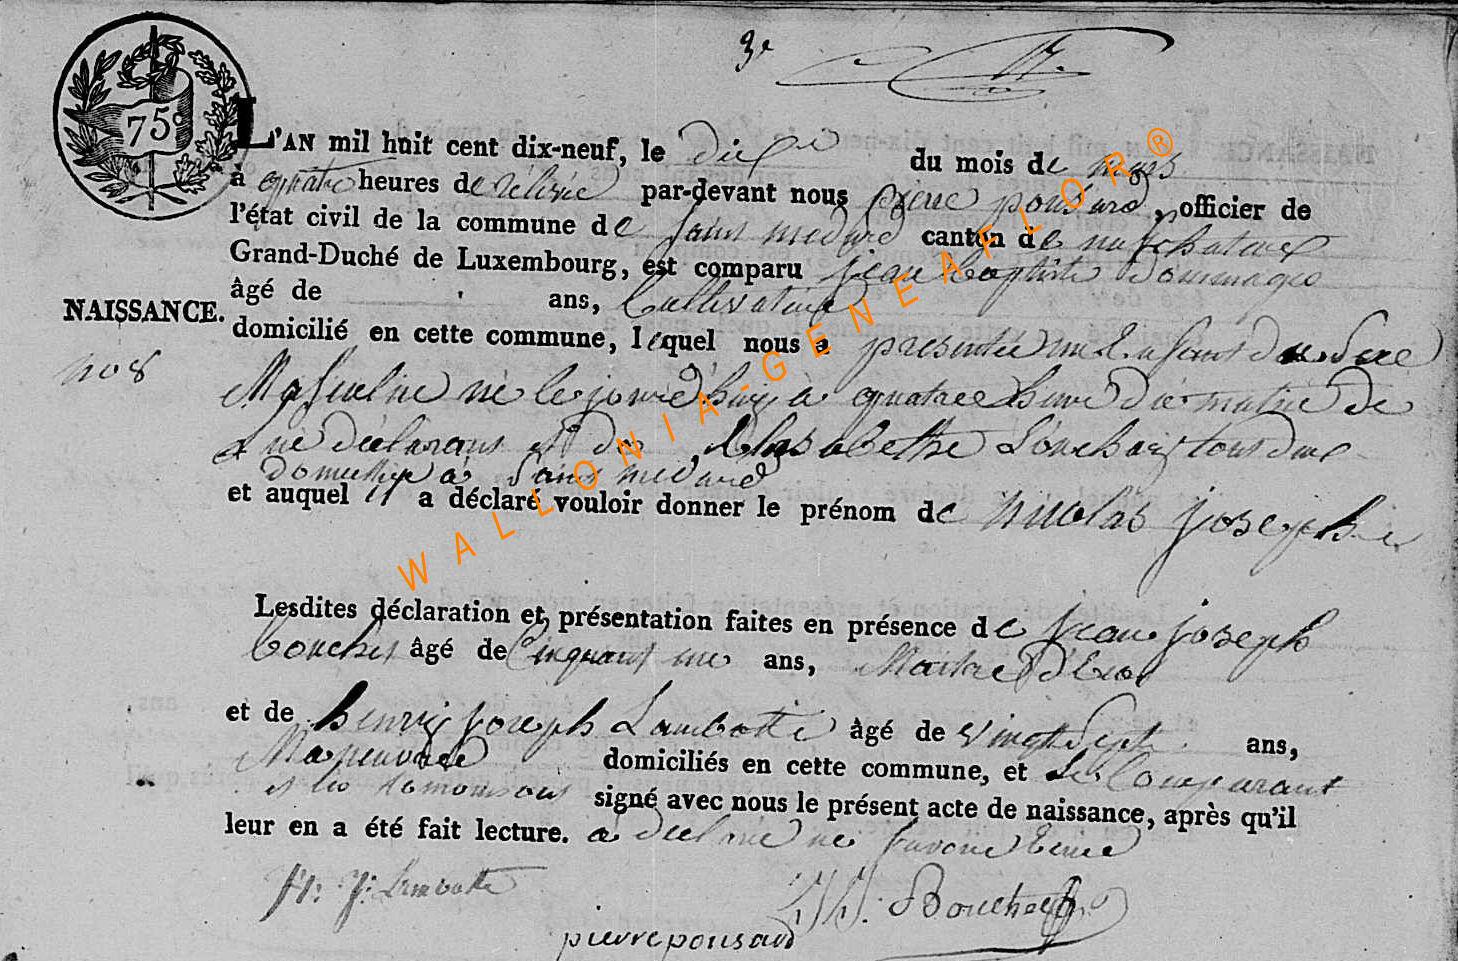 3e
75c
L'AN mil huit cent dix-neuf, le dix du mois de mars
à quatre heures de relevée par-devant nous pierre ponsard, officier de
l'état civil de la commune de Saint medard canton de neufchateau
Grand-Duché de Luxembourg, est comparu jean baptiste
âgé de ans, Cultivateur
NAISSANCE.
domicilié en cette commune, lequel nous a presentée un Enfant du Sexe
no 8
Masculin né le jour d'huy à quatre heure de matin de
declarant et de Elisabethe tous deux
a Saint medard
et auquel il a déclaré vouloir donner le prénom de nicolas josephe
WALLONIA-GENEAFLOR®
Lesdites déclaration et présentation faites en présence de jean joseph
bouchez âgé de Cinquant ans, Maitre d'
et de henri joseph Lambotte âgé de vingt Sept ans,
Maneuvre domiciliés en cette commune, et Le Comparant
et les signé avec nous le présent acte de naissance, après qu'il
leur en a été fait lecture. a declaré ne Savoir
h: j: Lambotte
J J. Bouchez
pierre ponsard